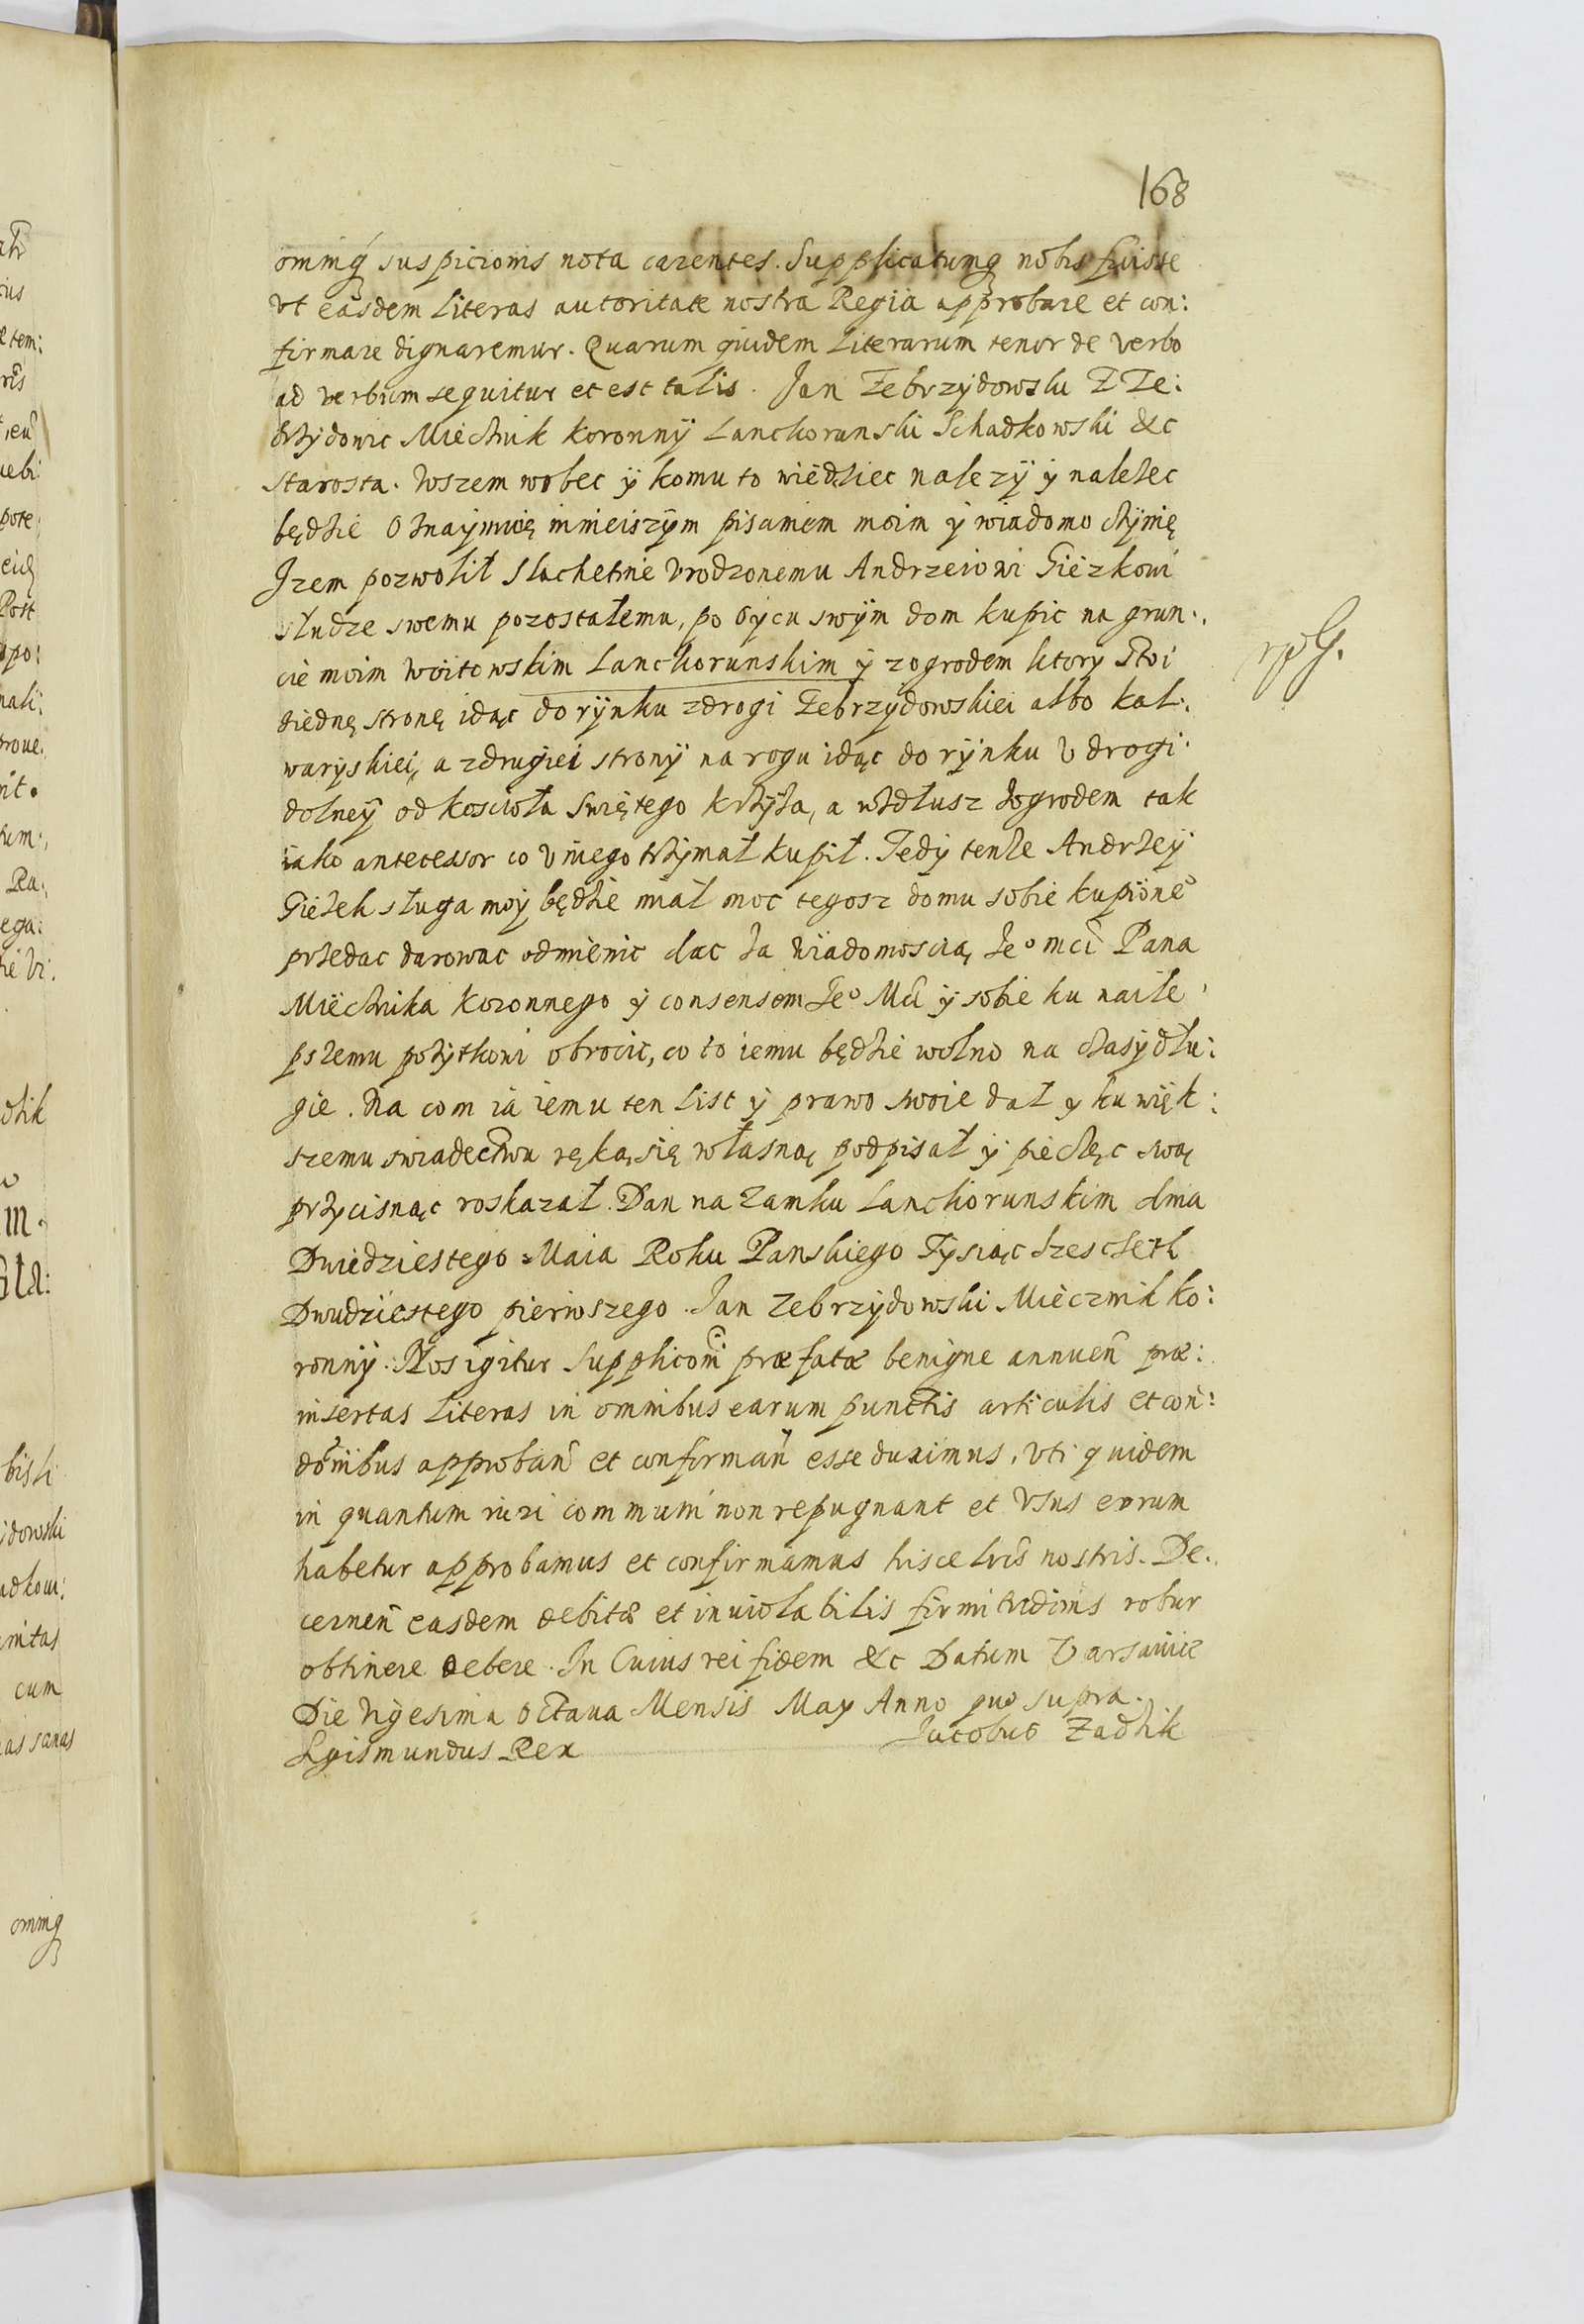 168
omniq suspicionis nota carentes. Supplicatumq nobis fuisse
vt easdem Literas autoritate nostra Regia approbare et con:
firmare dignaremur. Quarum quidem Literarum tenor de verbo
ad verbum sequitur et est talis. Jan Zebrzydowski Z Ze:
brzydowic Miecznik Koronny Lanckorunski Schadkowski &c
Starosta. Wszem wobec ÿ komu to wiedziec nalezÿ ÿ nalezec
będzie Oznaymuię inieiszÿm pisaniem moim ÿ wiadomo czÿnię
Izem pozwolił Slachetnie Vrodzonemu Andrzeiowi Giezkowi
słudze swemu pozostałemu, po oÿcu swÿm dom kupic na grun:
cie moim woitowskim Lanckorunskim ÿ zogrodem ktorÿ stoi
ziednę stronę idąc do rÿnku zdrogi Zebrzÿdowskiei albo kal:
warÿskiei, a zdrugiei stronÿ na rogu idąc do rÿnku V drogi
dolneÿ od kosciola Swiętego krzÿża, a wzdłusz zogrodem tak
iako antecessor co V niego trzÿmał kupił. Tedÿ tenze Andrzeÿ
Gieżek sługa moÿ będzie miał moc tegosz domu sobie kupione°
przedac darowac odmienic dac za wiadomoscią Je° mci Pana
Miecznika koronnego ÿ consensem Je° Mci ÿ sobie ku naile
pszemu pozÿtkowi obrocic, co to iemu będzie wolno na czasÿ dłu:
gie. Na com ia iemu ten List ÿ prawo swoie dał ÿ ku więk:
szemu swiadectwu ręką się własną podpisał ÿ pieczęc swą
przÿcisnąc roskazał. Dan na Zamku Lanckorunskim dnia
Dwiedziestego Maia Roku Panskiego Tÿsiąc szescseth
Dwudziestego pierwszego. Jan Zebrzÿdowski Miecznik ko:
ronnÿ. Nos igitur Suppliconi præfatæ benigne annuen præ:
insertas Literas in omnibus earum punctis articulis et con:
donibus approban et confirman esse duximus. Vti quidem
in quantum iuri communi non repugnant et Vsus eorum
habetur approbamus et confirmamus hisce lris nostris. De:
cernen easdem debitæ et inuiolabilis firmitudinis robur
obtinere debere. In Cuius rei fidem &c Datum Varsauiæ
Die Vigesima octaua Mensis May Anno quo supra.
Sgismundus Rex Jacobus Zadzik